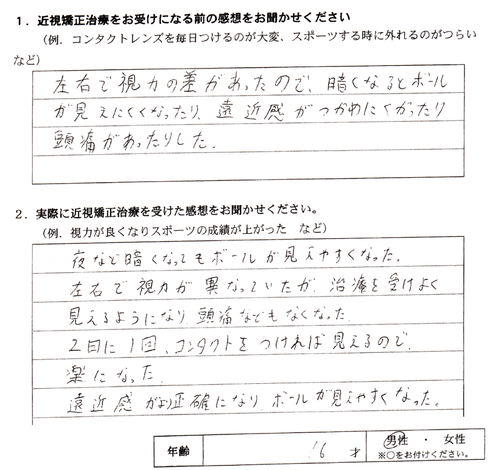 1．近視矯正治療をお受けになる前の感想をお聞かせください
（例．コンタクトレンズを毎日つけるのが大変、スポーツする時に外れるのがつらい
など）
左右で視力の差があったので、暗くなるとボール
が見えにくくなったり、遠近感がつかめにくかったり
頭痛があったりした。
2．実際に近視矯正治療を受けた感想をお聞かせください。
（例．視力が良くなりスポーツの成績が上がった　など）
夜など暗くなってもボールが見えやすくなった。
左右で視力が異なっていたが、治療を受けよく
見えるようになり、頭痛などもなくなった。
2日に1回、コンタクトをつければ見えるので、
楽になった。
遠近感がより正確になり、ボールが見えやすくなった。
年齢　16 才　男性　・　女性
※○をお付けください。